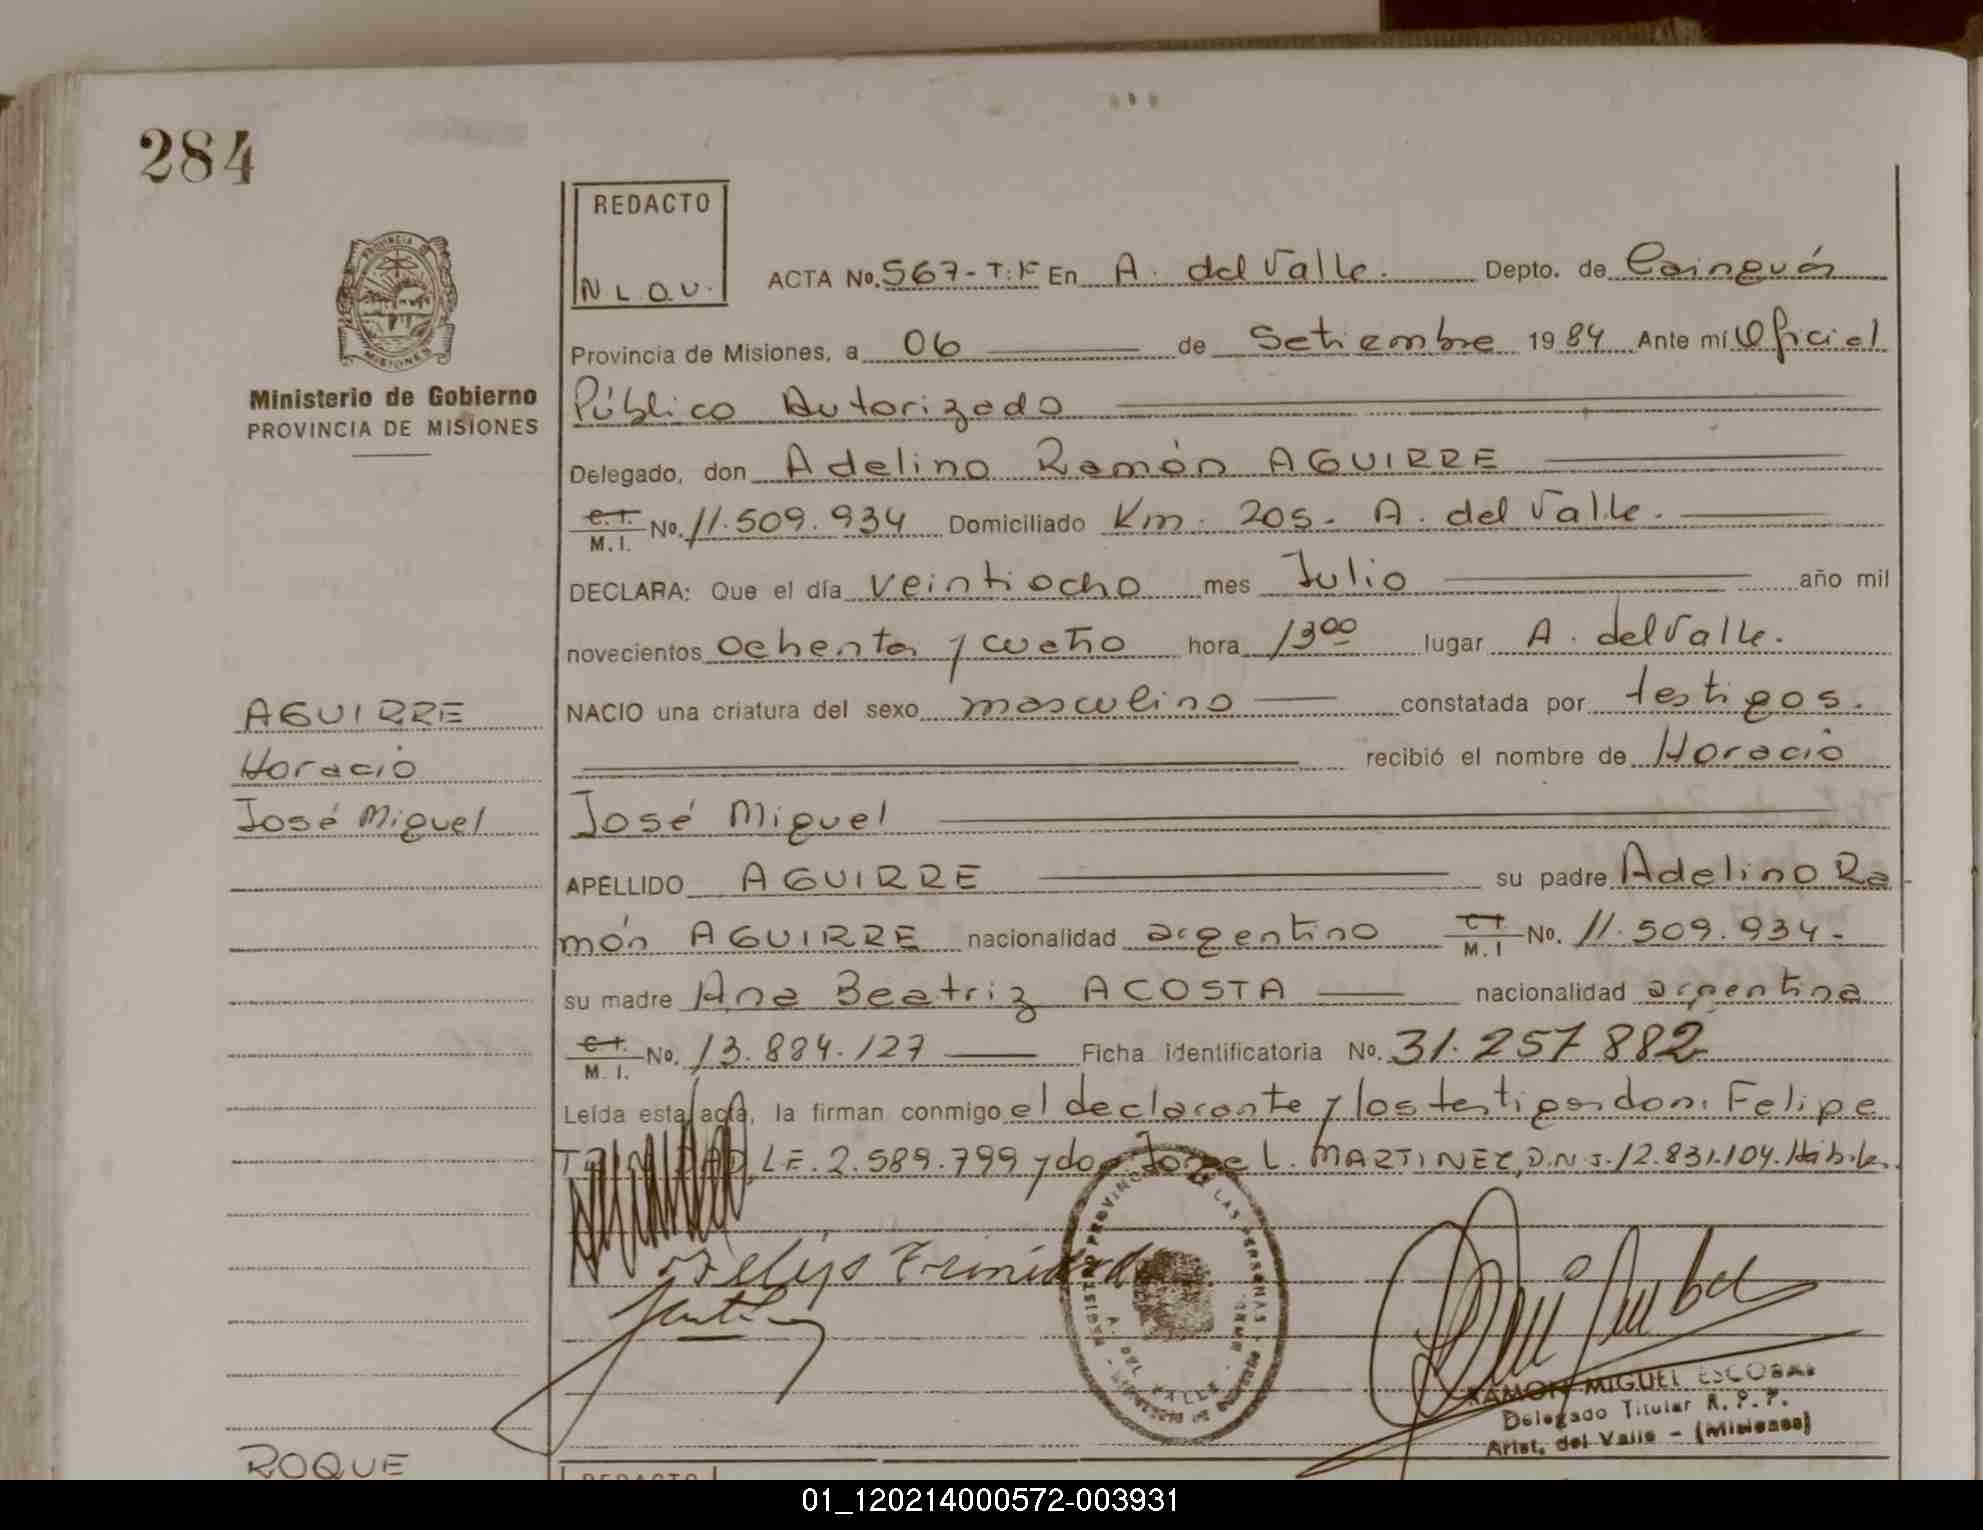 284
REDACTO
N L O.V.
PROVINCIA DE
MISIONES
Ministerio de Gobierno
PROVINCIA DE MISIONES
ACTA No. 567-T:F En A. del Valle. Depto. de Cainguás
Provincia de Misiones, a 06 de Setiembre 1984 Ante mí Oficial
Público Autorizado
Delegado, don Adelino Ramón AGUIRRE
C.I. M.I. No. 11.509.934 Domiciliado Km. 205. A. del Valle.
DECLARA: Que el día veintiocho mes Julio año mil
novecientos ochenta y cuatro hora 13 00 lugar A. del Valle.
AGUIRRE
Horacio
José Miguel
NACIO una criatura del sexo masculino constatada por testigos.
recibió el nombre de Horacio
José Miguel
APELLIDO AGUIRRE su padre Adelino Ra
món AGUIRRE nacionalidad argentino C I M.I No. 11.509.934-
su madre Ana Beatriz ACOSTA nacionalidad argentina
C.I. M.I. No. 13.884.127 Ficha identificatoria No. 31.257 882
Leída esta acta, la firman conmigo el declarante y los testigos don: Felipe
L.E. 2.589.799 y don Jorge L. MARTINEZ, D.N.I. 12.831.104. Hábiles.
Felips Trinidad
A. DEL VALLE
RAMON MIGUEL ESCOBAR
Delegado Titular R. P. P.
Arist. del Valle - (Misiones)
ROQUE
REDACTO
01_120214000572-003931